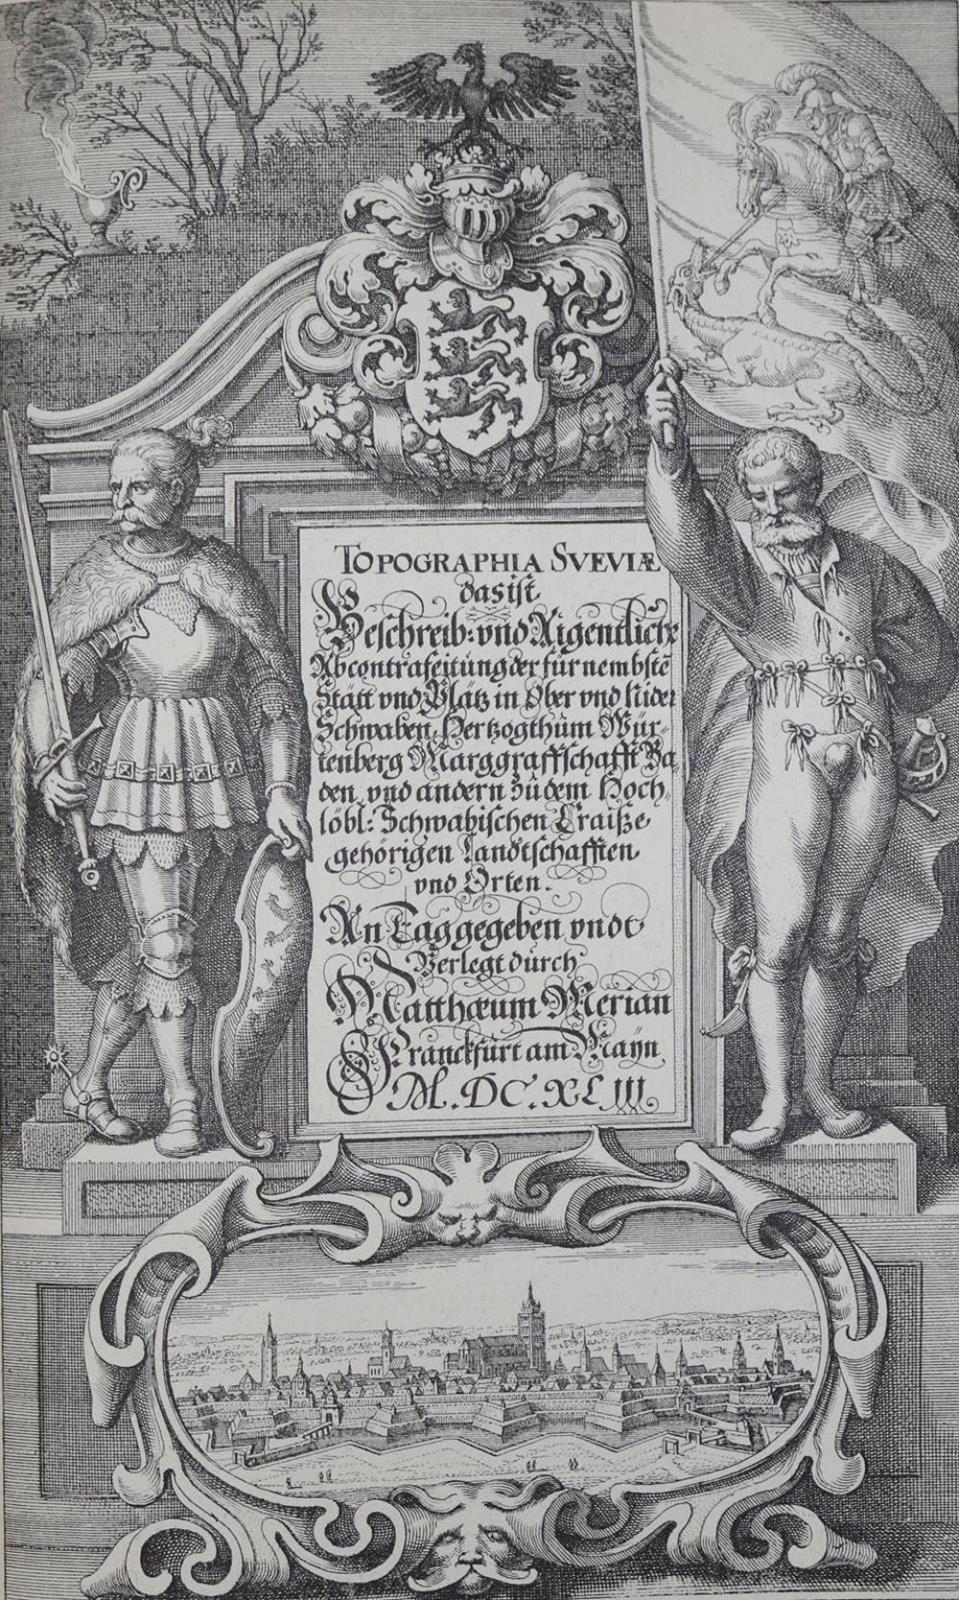 TOPOGRAPHIA SVEVIÆ
das ist
Beschreib: vnd Aigentliche
Abcontrafeitung der fürnembstē
Stätt vnd Plätz in Ober vnd Nider
Schwaben, Hertzogthum Wür-
tenberg Marggraffschafft Ba
den, vnd andern zu dem Hoch,
löbl: Schwabischen Craiße
gehörigen Landtschafften
vnd Orten.
An Tag gegeben vndt
Verlegt durch
Matthæum Merian
Franckfurt am Mäyn
M.DC.XLIII